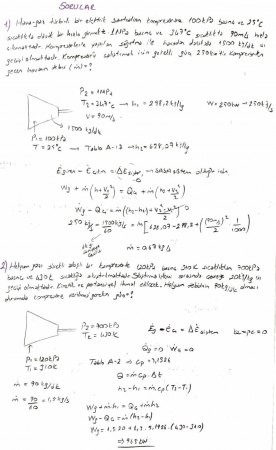 SORULAR
1) Hava-gaz türbinli bir elektrik santralinin kompresörüne 100kPa basınç ve 25°C
sıcaklıkta düşük bir hızla girmekte 1MPa basınç ve 347°C sıcaklıkta 90m/s hızla
çıkmaktadır. Kompresörde yapılan soğutma ile havadan dakikada 1500 kJ/dk ısı
geçişi olmaktadır. Kompresörü çalıştırmak için gerekli güç 250kw kompresörden
geçen havanın debisi (ṁ)=?
P2 = 1MPa
T2 = 347°C → h2 = 298,2 kJ/kg
V = 90m/s
W = 250kw → 250kJ/s
1500 kJ/dk
P1 = 100kPa
T = 25°C → Tablo A-13 → h1 = 628,07kJ/kg
Egiren - Eçıkan = ΔEsistem → olduğu için
Wg + ṁ(h1+V1²/2) = Qç + ṁ(h2+V2²/2)
Wg - Qç = ṁ(h2-h1)
250 kJ/s - 1500kJ/60s = ṁ[628,07-298,2+((90m/s)²/2) 1/1000]
ṁ = 0,67 kg/s
2) Helyum gazı sürekli akışlı bir kompresörde 120kPa basınç 310K sıcaklıktan 700kPa
basınç ve 430K sıcaklığa sıkıştırılmaktadır. Sıkıştırılırken 20kJ/kg ısı
geçişi olmaktadır. Kinetik ve potansiyel ihmal edilecek. Helyum debisinin 90kg/dk olması
durumunda kompresöre verilmesi gereken güç=?
P2 = 700kPa
T2 = 430K
Eg - Eç = ΔEsistem
ke=pe=0
Qg = 0 Wç = 0
P1 = 120kPa
T1 = 310K
Tablo A-2 → Cp = 5,1926
ṁ = 90kg/dk
Q = ṁ Cp . Δt
h2-h1 = ṁ Cp (T2-T1)
ṁ = 90/60 = 1,5 kg/s
Wg + ṁh1 = Qç + ṁh2
Wg - Qç = ṁ(h2-h1)
Wg = 1,5.20 + 1,5.5,1926.(430-310)
⇒ 965kW